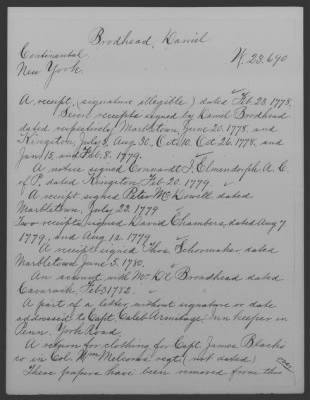 Brodhead, Daniel
Continental W. 23,690
New York.
A receipt, (signature illegible) dated Feb. 23, 1778.
Seven receipts signed by Daniel Brodhead
dated respectively Marbletown, June 20, 1778, and
Kingston, July 8, Aug. 30, Oct. 10, Oct. 26, 1778, and
Jan. 13, and Feb. 8, 1779.
A notice signed Connardt J. Elmendorph A. C.
of P., dated Kingston Feb. 20, 1779
A receipt signed Peter McDowell dated
Marbletown, July 22, 1779
Two receipts signed David Chambers, dated Aug 7
1779, and Aug. 12, 1779
A receipt signed Thos. Schoonmaker dated
Marbletown June 5, 1780.
An account with Mr. D. Broadhead dated
Feb. 3, 1782.
A part of a letter, without signature or date
addressed to Capt. Caleb Armitage, Inn keeper in
Penn. York Road.
A return for clothing for Capt. James Blacks
co in Col. Wm regt. (not dated)
These papers have been removed from this